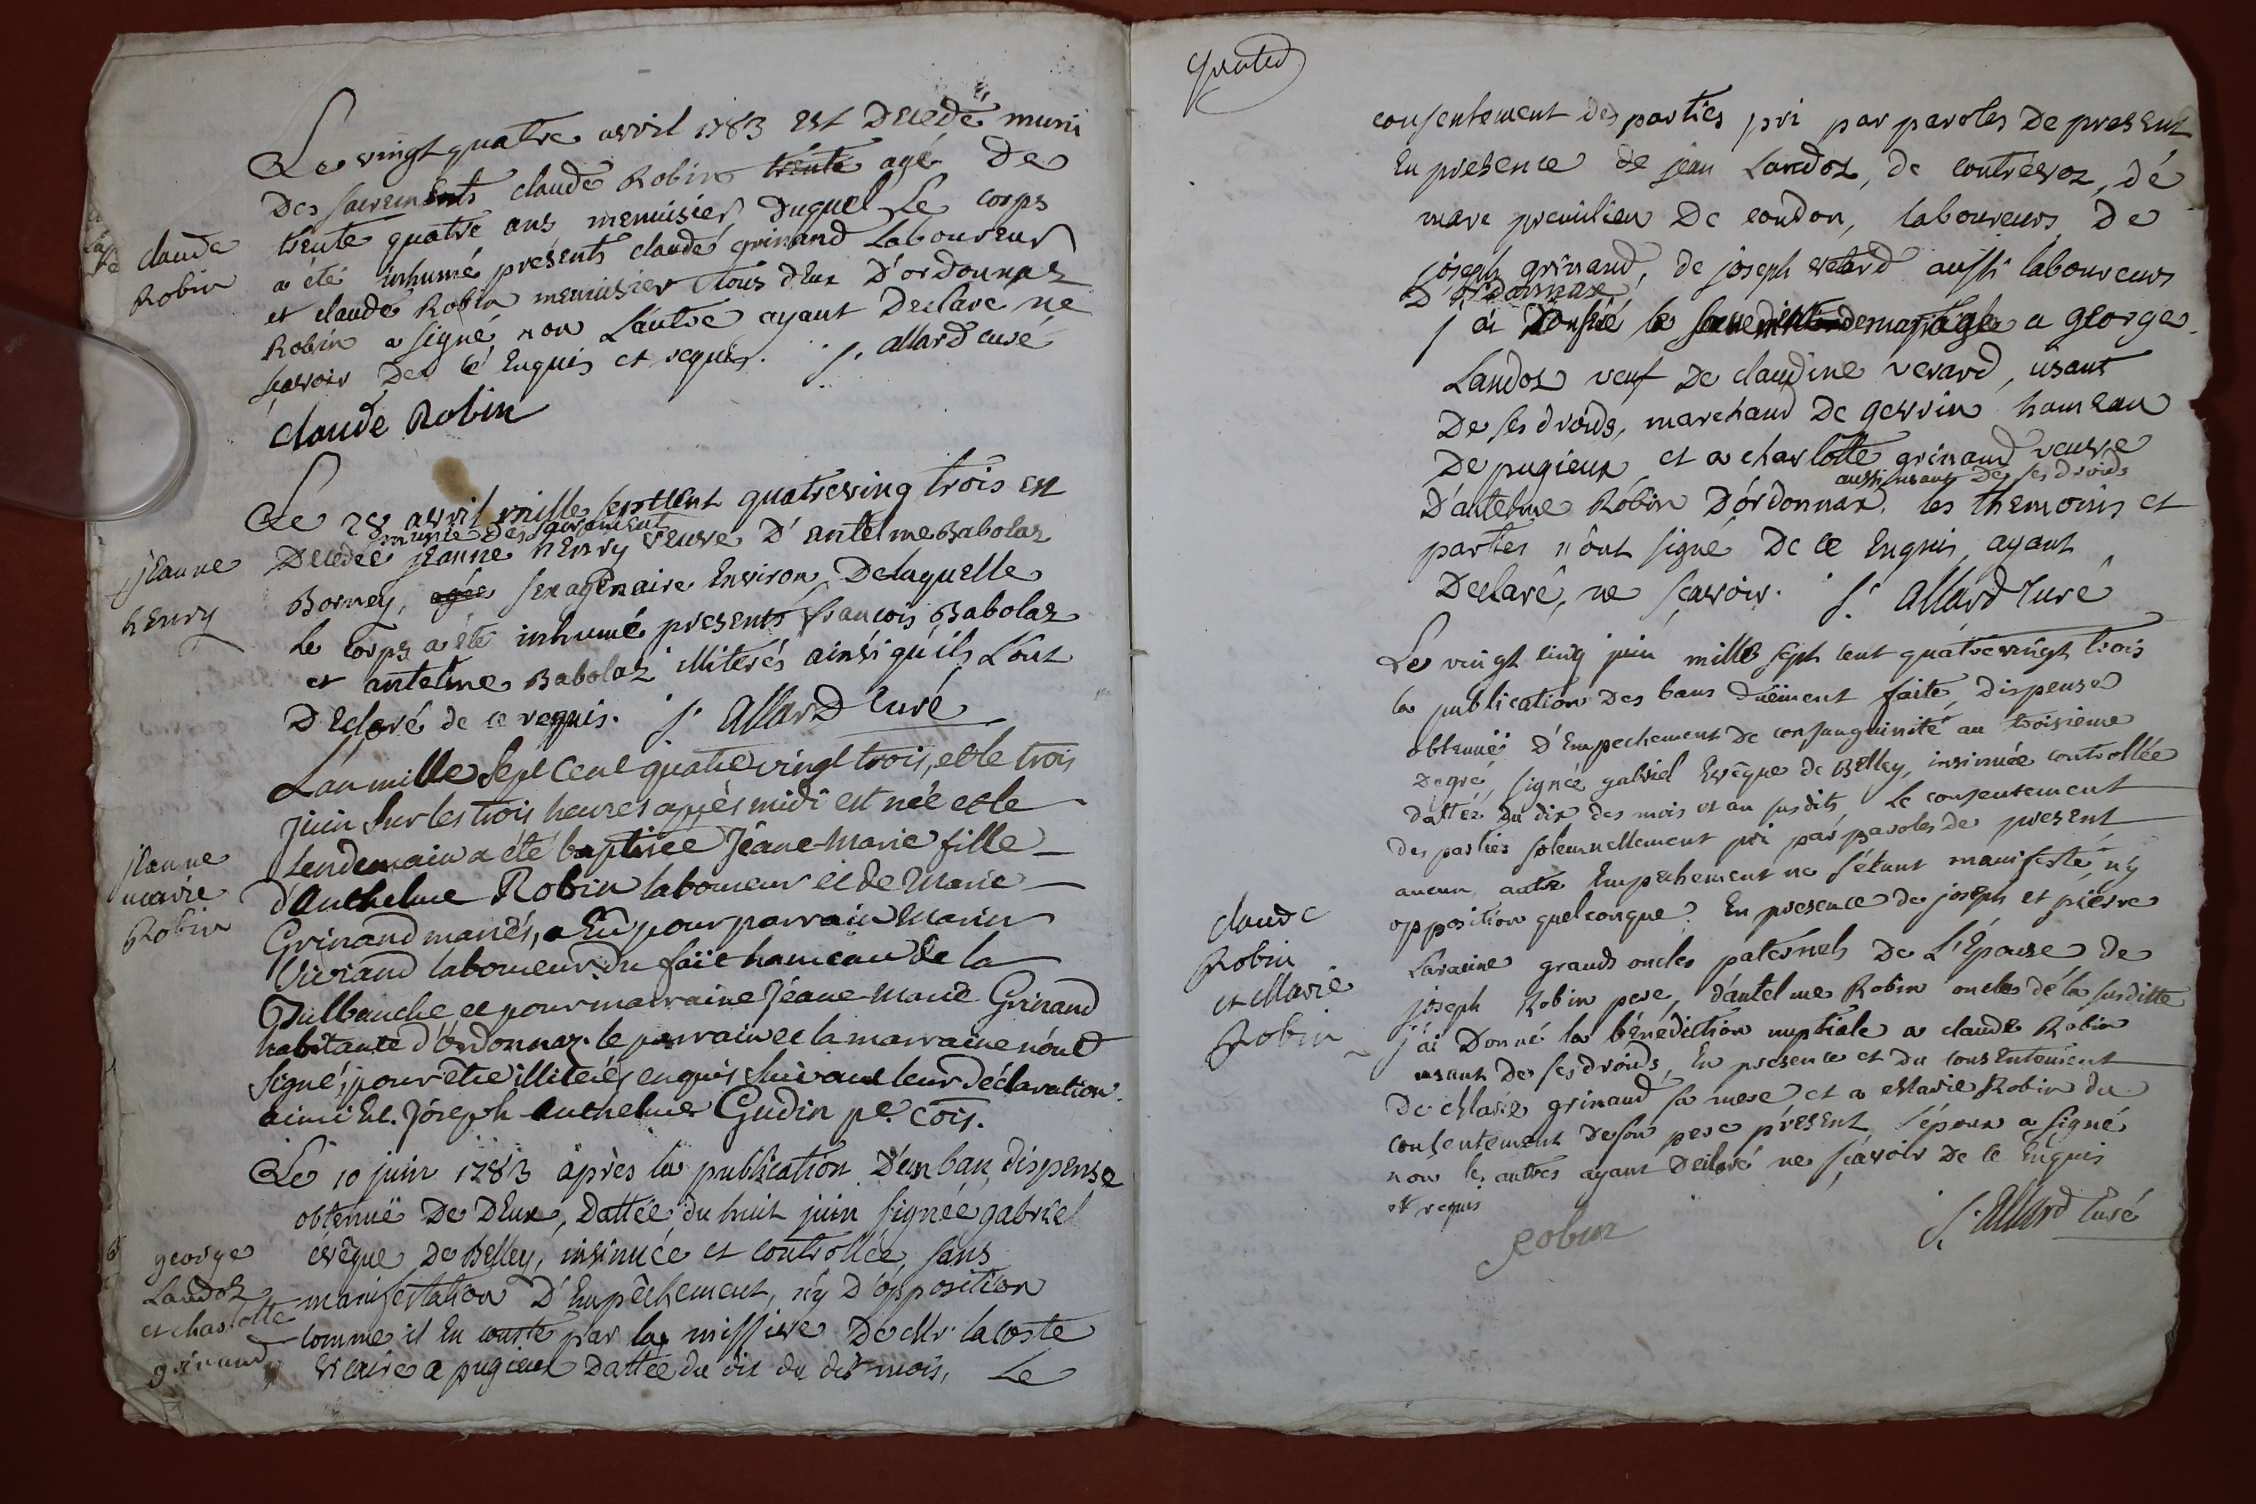 Le vingt quatre avril 1783 est decedé muni
des sacrements claude Robin trente agé de
trente quatre ans menuisier, duquel le corps
a été inhumé présents claude grinand laboureur
et claude Robin menuisier tous deux d'ordonnaz
Robin a signé non l'autre ayant declare ne
scavoir de ce enquis et requis. J. allard curé
claude Robin
claude
Robin
Le 28 avril mille sept cent quatreving trois est
munie des sacrament
decedée jeanne henry veuve d'antelme Babolaz
Borney, agée sexagenaire environ, delaquelle
le corps a été inhumé presents francois Babolaz
et antelme Babolaz illiterés ainsi qu'ils l'ont
declaré de ce requis. J. allard curé
jeanne
henry
L'an mille sept cent quatre vingt trois, et le trois
juin sur les trois heures après midi est née et le
lendemain a été baptisée Jéane-Marie fille
d'Anthelme Robin laboureur et de Marie
Grinand mariés, a eu pour parrain Marin
Viviand laboureur du faÿ hameau de la
et pour marraine Jéane-Marie Grinand
habitante d'Ordonnaz. le parrain et la marraine n'ont
signé, pour être illiterés enquis suivant leur déclaration.
ainsi est. Joseph Anthelme Gudin pe. cois.
jeanne
marie
Robin
Le 10 juin 1783 après la publication d'un ban, dispense
obtenuë de deux, dattée du huit juin signée gabriel
évêque de Belley, insinuée et controllée, sans
manifestation d'empêchement, n'y d'opposition
comme il en conste par la missive de Mr. lacoste
vicaire a pugieux dattée du dix du dit mois, le
george
Landoz
et charlotte
grinand
consentement des parties pri par paroles de present
en présence de jean Landoz, de contrévoz, de
marc premilieu de condon, laboureurs de
joseph grinand, de joseph verard aussi laboureurs
d'ordonnaz,
j'ai donné le sacrement de mariage a george
Landoz veuf de claudine verard, usant
de ses droids, marchand de gevrin hameau
de pugieux et a charlotte grinand veuve
aussi usant de ses droids
d'antelme Robin d'ordonnaz. les themoins et
parties n'ont signé de ce enquis, ayant
declaré, ne scavoir. J. allard curé
Le vingt cinq juin mille sept cent quatrevingt trois
la publication des bans duëment faite, dispense
obtenuë d'empechement de consanguinité au troisieme
degré, signée gabriel evêque de Belley, insinuée controllée
dattée du dix des mois et an susdits le consentement
des parties solemnellement pri par paroles de present
aucun autre empechement ne s'étant manifesté, n'y
opposition quelconque. En presence de joseph et pierre
Laracine grands oncles paternels de l'épouse de
joseph Robin pere, d'antelme Robin oncle de la susditte
j'ai donné la bénédiction nuptiale a claude Robin
usant de ses droids, en presence et du consentement
de Marie grinand sa mere, et a Marie Robin du
consentement de son pere présent l'époux a signé
non les autres ayant declaré ne sçavoir de ce enquis
et requis
J. allard curé
Robin
claude
Robin
et Marie
Robin